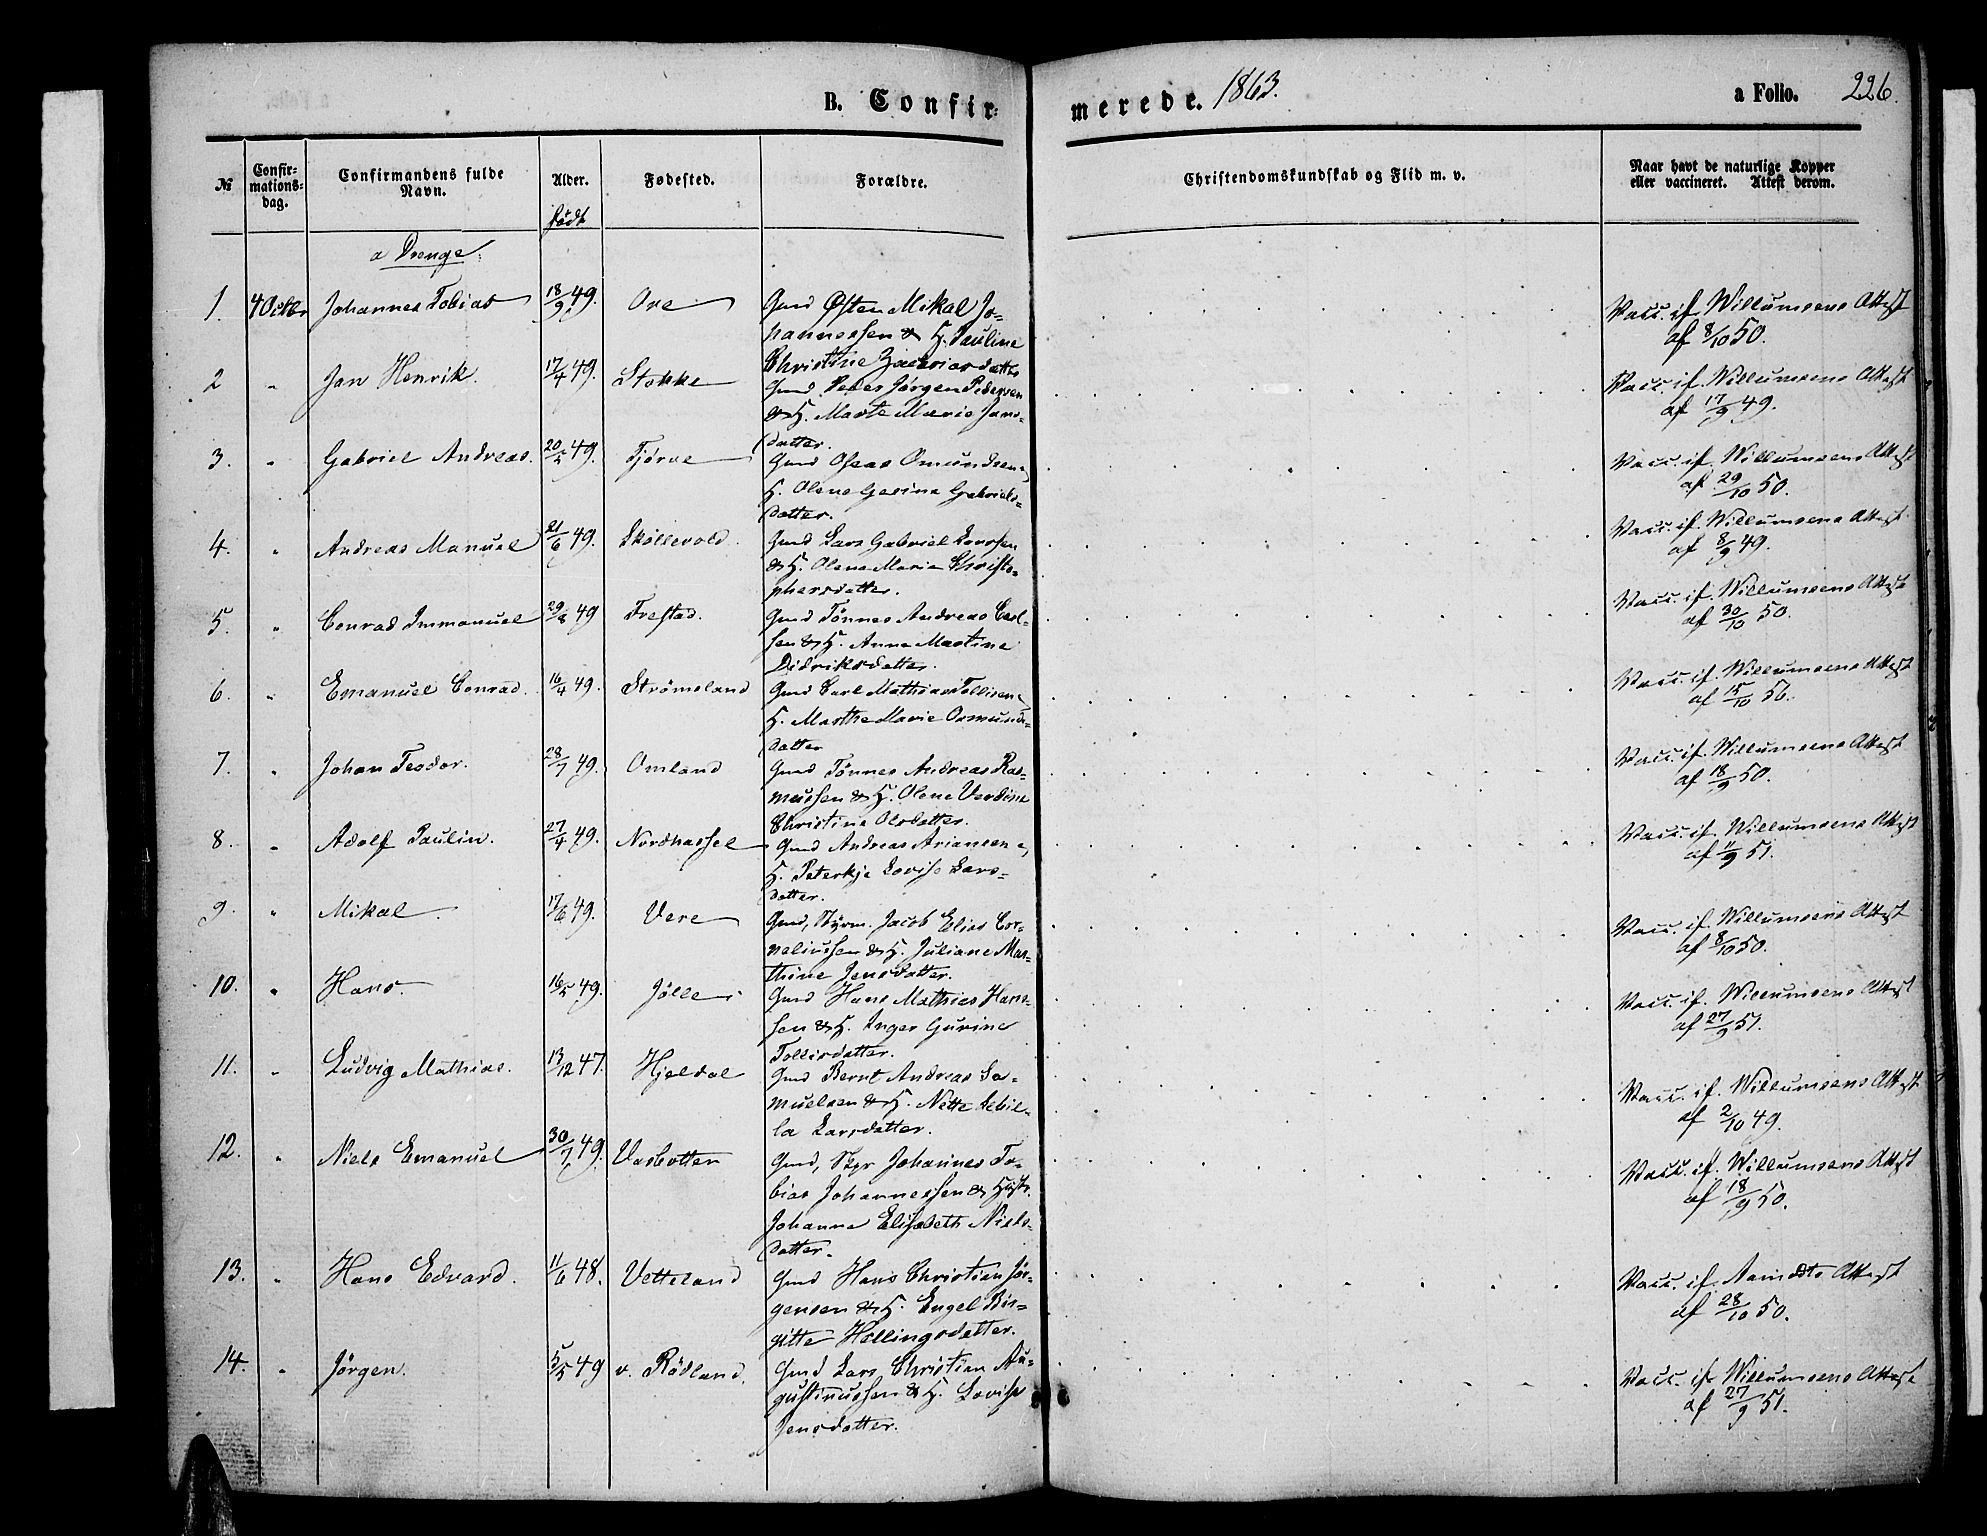 B. Confirmerede. 1863. a Folio. 226.
№ Confirmations-dag. Confirmandens fulde Navn. Alder. Fødested. Forældre. Christendomskundskab og Flid m. v. Naar havt de naturlige Kopper eller vaccineret. Attest derom.
født
a Drenge.
1. 4 Octbr Johannes Tobias 18/9 49. Ore Gmd Østen Mikal Jo- Vacc. if. Willumsens Attest
hannessen & H. Pauline af 8/10 50.
Christine Zakariasdatter
2 " Jan Henrik. 17/4 49. Stokke Gmd Peder Jørgen Pedersen Vacc. if. Willumsens Attest
& H. Marte Marie Jans- af 17/9 49.
datter.
3. " Gabriel Andreas. 20/5 49. Tjørve Gmd Oseas Omundsen & Vacc. if. Willumsens Attest
H. Olene Gesine Gabriels- af 29/10 50.
datter.
4. " Andreas Manuel 21/6 49. Skollevold. Gmd Lars Gabriel Larssen Vacc. if. Willumsens Attest
& H. Olene Marie Christo- af 8/9 49.
phersdatter.
5. " Conrad Immanuel 49 Frestad. Gmd Tønnes Andreas Carl- Vacc. if. Willumsens Attest
sen & H. Anne Martine af 30/10 50.
Didriksdatter.
6. " Emanuel Conrad. 16/4 49. Strømsland Gmd Carl Mathias Tollisen & Vacc. if. Willumsens Attest
H. Marthe Marie Osmunds- af 15/10 56.
datter
7. " Johan Teodor. 28/7 49. Omland Gmd Tønnes Andreas Ras- Vacc. if. Willumsens Attest
mussen & H. Olene Verdine af 18/9 50.
Christine Olsdatter.
8. " Adolf Paulin. 27/4 49. Nordhassel Gmd Andreas Ariansen & Vacc. if. Willumsens Attest
H. Peterkje Lovise Lars- af 11/9 51.
datter.
9. " Mikal. 17/6 49. Vere Gmd, Styrm. Jacob Elias Cor- Vacc. if. Willumsens Attest
neliussen & H. Juliane Mar- af 8/10 50.
thine Jensdatter.
10. " Hans. 16/5 49. Jølle Gmd Hans Mathias Hans- Vacc. if. Willumsens Attest
sen & H. Inger Gurine af 27/9 51.
Tollisdatter.
11. " Ludvig Mathias. 13/12 47. Hjeldal Gmd Bernt Andreas Sa- Vacc. if. Willumsens Attest
muelsen & H. Nette Sebil- af 2/10 49.
la Larsdatter.
12. " Niels Emanuel 30/7 49. Vasbotten Gmd, Skpr Johannes To- Vacc. if. Willumsens Attest
bias Johannessen & Hustr. af 18/9 50.
Johanne Elisabeth Niels-
datter.
13. " Hans Edvard. 11/6 48. Vetteland Gmd Hans Christian Jør- Vacc. if. Attest
gensen & H. Engel Bir- af 28/10 50.
gitte Hellingsdatter.
14. " Jørgen. 5/5 49 v. Rødland. Gmd Lars Christian Au- Vacc. if. Willumsens Attest
gustinussen & H. Lovise af 27/9 51.
Jensdatter.